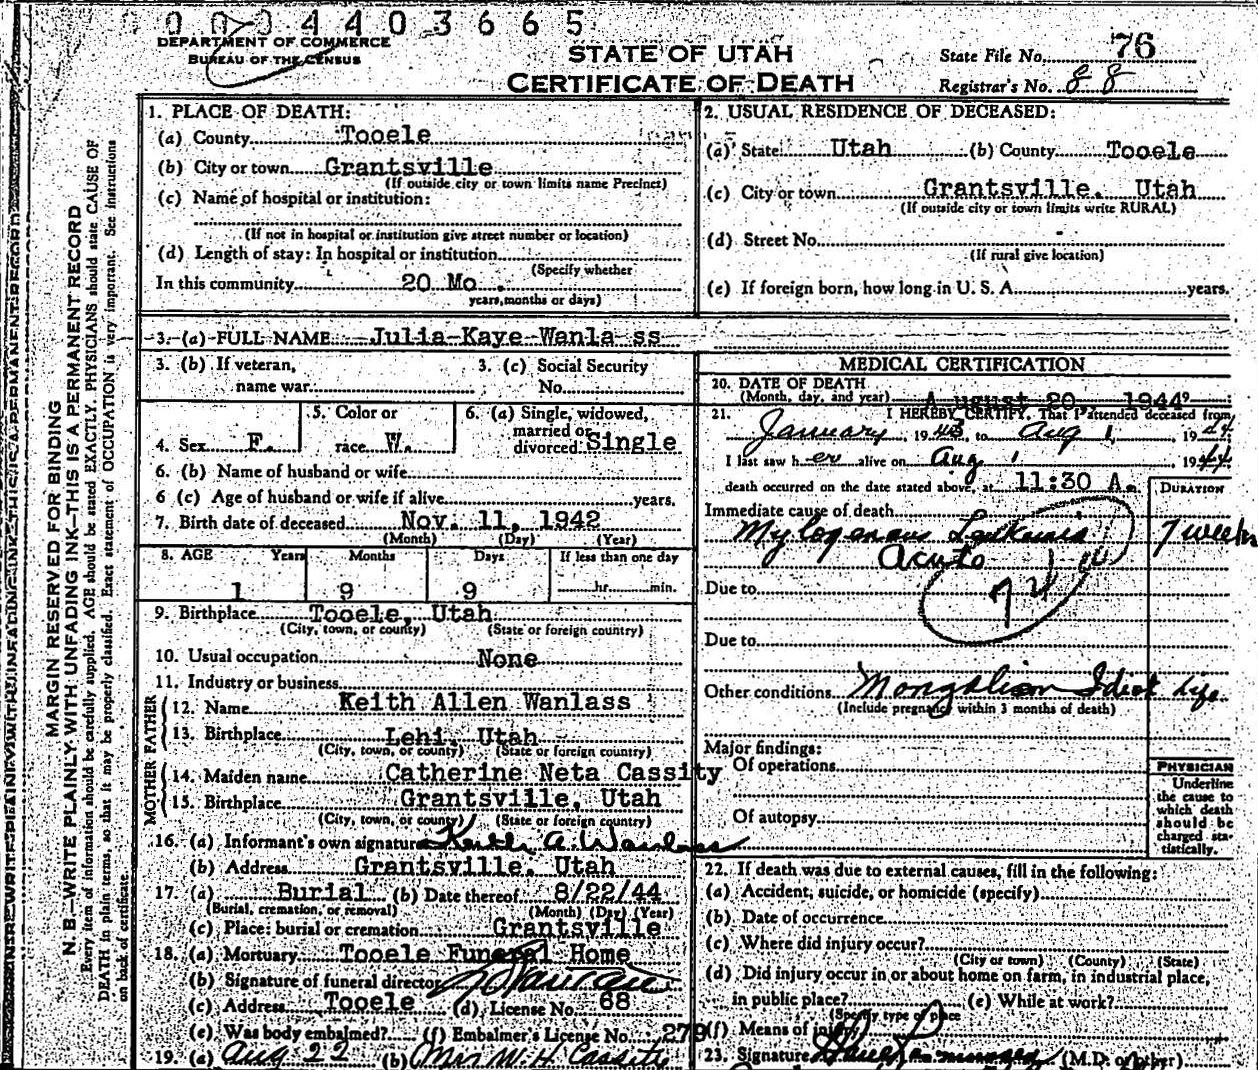 0 0 0 4 4 0 3 6 6 5
DEPARTMENT OF COMMERCE
BUREAU OF THE CENSUS
STATE OF UTAH
CERTIFICATE OF DEATH
State File No. 76
Registrar's No. 88
MARGIN RESERVED FOR BINDING
N. B.—WRITE PLAINLY WITH UNFADING INK—THIS IS A PERMANENT RECORD
Every item of information should be carefully supplied. AGE should be stated EXACTLY. PHYSICIANS should state CAUSE OF
DEATH in plain terms, so that it may be properly classified. Exact statement of OCCUPATION is very important. See instructions
on back of certificate.
1. PLACE OF DEATH:
(a) County Tooele
(b) City or town Grantsville
(If outside city or town limits name Precinct)
(c) Name of hospital or institution:
(If not in hospital or institution give street number or location)
(d) Length of stay: In hospital or institution
(Specify whether
In this community 20 Mo.
years, months or days)
2. USUAL RESIDENCE OF DECEASED:
(a) State Utah (b) County Tooele
(c) City or town Grantsville, Utah
(If outside city or town limits write RURAL)
(d) Street No.
(If rural give location)
(e) If foreign born, how long in U. S. A. years.
3. (a) FULL NAME Julia Kaye Wanla ss
3. (b) If veteran, name war
3. (c) Social Security No.
4. Sex F.
5. Color or race W.
6. (a) Single, widowed, married or divorced Single
6. (b) Name of husband or wife
6 (c) Age of husband or wife if alive years.
7. Birth date of deceased Nov. 11, 1942
(Month) (Day) (Year)
8. AGE Years Months Days If less than one day
1 9 9 hr. min.
9. Birthplace Tooele, Utah
(City, town, or county) (State or foreign country)
10. Usual occupation None
11. Industry or business
FATHER
12. Name Keith Allen Wanlass
13. Birthplace Lehi, Utah
(City, town, or county) (State or foreign country)
MOTHER
14. Maiden name Catherine Neta Cassity
15. Birthplace Grantsville, Utah
(City, town, or county) (State or foreign country)
16. (a) Informant's own signature Keith A. Wanlass
(b) Address Grantsville, Utah
17 (a) Burial (b) Date thereof 8/22/44
(Burial, cremation, or removal) (Month) (Day) (Year)
(c) Place: burial or cremation Grantsville
18. (a) Mortuary Tooele Funeral Home
(b) Signature of funeral director
(c) Address Tooele (d) License No. 68
(e) Was body embalmed? (f) Embalmer's License No. 279
19. (a) Aug 22 (b) Mrs W. H. Cassity
MEDICAL CERTIFICATION
20. DATE OF DEATH
(Month, day, and year) August 20 1944
21. I HEREBY CERTIFY, That I attended deceased from
January, 1943, to Aug 1, 1944
I last saw her alive on Aug 1 1944
death occurred on the date stated above, at 11:30 A.
DURATION
Immediate cause of death
Mylogenous Leukemia 7 weeks
Acute
Due to
Due to
Other conditions Mongolism Idiot Life
(Include pregnancy within 3 months of death)
Major findings:
Of operations
Of autopsy
PHYSICIAN
Underline
the cause to
which death
should be
charged sta-
tistically.
22. If death was due to external causes, fill in the following:
(a) Accident, suicide, or homicide (specify)
(b) Date of occurrence
(c) Where did injury occur?
(City or town) (County) (State)
(d) Did injury occur in or about home on farm, in industrial place,
in public place? (e) While at work?
(Specify type of place
(f) Means of injury
23. Signature (M.D. or other)